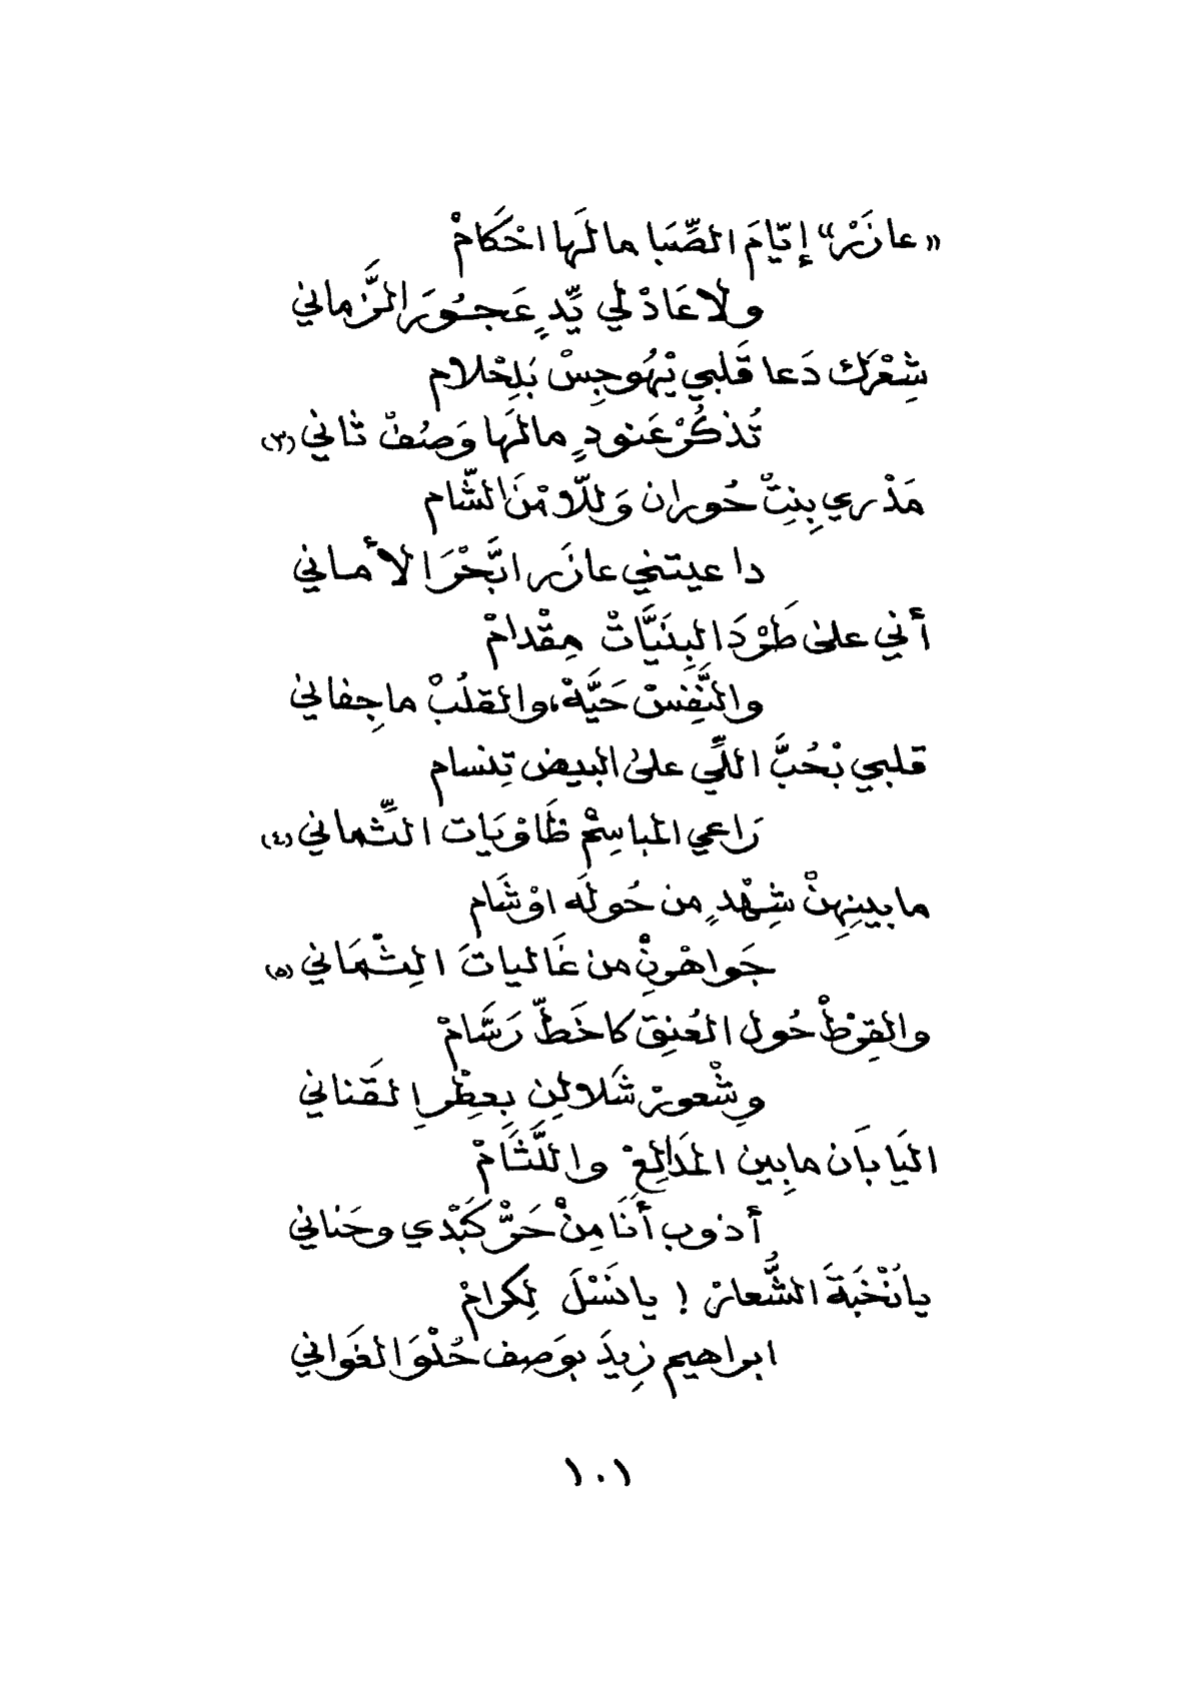 «عازَرْ» إيّامَ الصِّبَا ما لَها احْكامْ
ولا عَادْ لي يِّدٍ عَجُوزَ الزَّماني
شِعْرَك دَعا قَلبي يْهُوجِسْ بَلِحْلام
تُذكُرْ عَنودٍ ما لَها وَصُفْ ثاني (٣)
مَذْري بِنِتْ حُوران وَللّا مْنَ الشّام
داعيتني عازَر ابَّحْرَ الأماني
أني على طَرْدَ البِنَيَّاتْ مِقْدامْ
والنَّفِسْ حَيَّهْ، والقلُبْ ما جِفاني
قلبي بْحُبَّ اللّي على البيض تِنسام
رَاعي المباسِمْ ظَاوْيَات الثِّماني (٤)
ما بينِهِنْ شِهْدٍ من حُولَه اوْشَام
جَواهْرِنْ من غَاليات الِثْمَاني (٥)
والقِرْطْ حُول العُنِقَ كا خَطّ رَسَّامْ
وِشْعورْ شَلالِنِ بِعطِرِ القَناني
اليَا بَان ما بِين المَدَالِعْ واللَّثَامْ
أذوب أنَا مِنْ حَرّ كَبْدي وحَناني
يا نُخْبَةَ الشُّعارْ ! يا نَسْلَ لِكرامْ
ابراهيم زِيدَ بوَصِف حُلْوَ الغَواني
١٠١